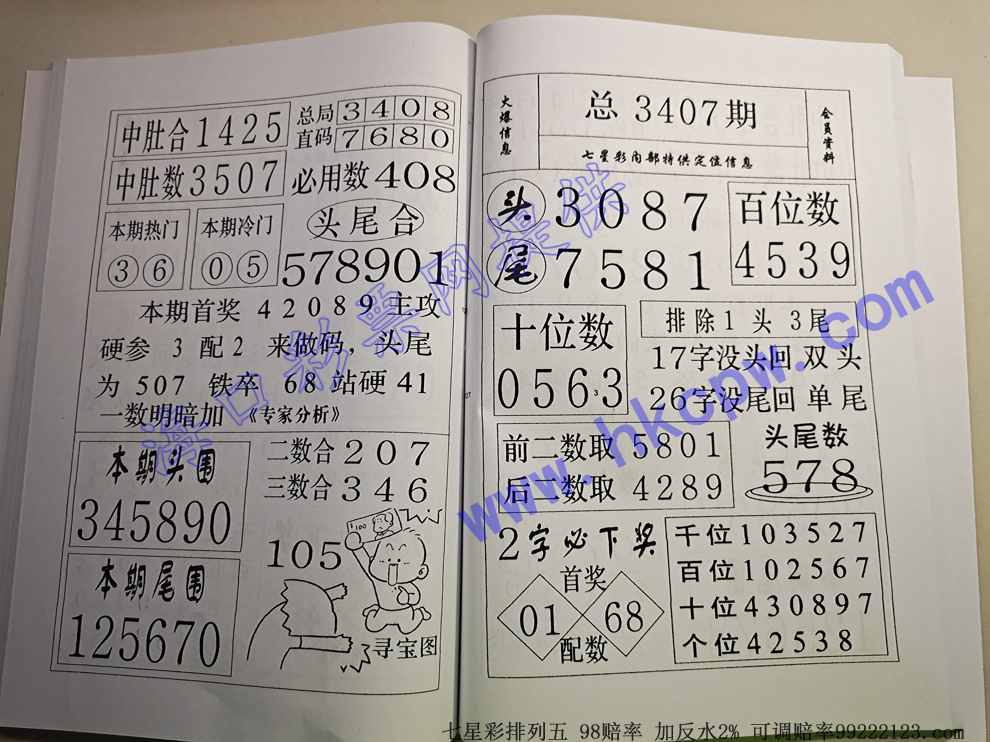 中肚合1425
总局 3408
直码 7680
中肚数3507
必用数408
本期热门
③⑥
本期冷门
⓪⑤
头尾合
578901
本期首奖 42089 主攻
硬参 3 配2 来做码，头尾
为 507 铁卒 68 站硬 41
一数明暗加 《专家分析》
本期头围
345890
本期尾围
125670
二数合207
三数合346
100
105
寻宝图
火爆信息
总 3407期
七星彩内部特供定位信息
会员资料
头 3087
尾 7581
百位数
4539
十位数
0563
3
排除1 头 3尾
17字没头回 双 头
26字没尾回 单 尾
前二数取 5801
后二数取 4289
头尾数
578
2字必下奖
首奖
01 68
配数
千位103527
百位102567
十位430897
个位42538
海口彩票网提供
www.hkcpw.com
七星彩排列五 98赔率 加反水2% 可调赔率99222123.com